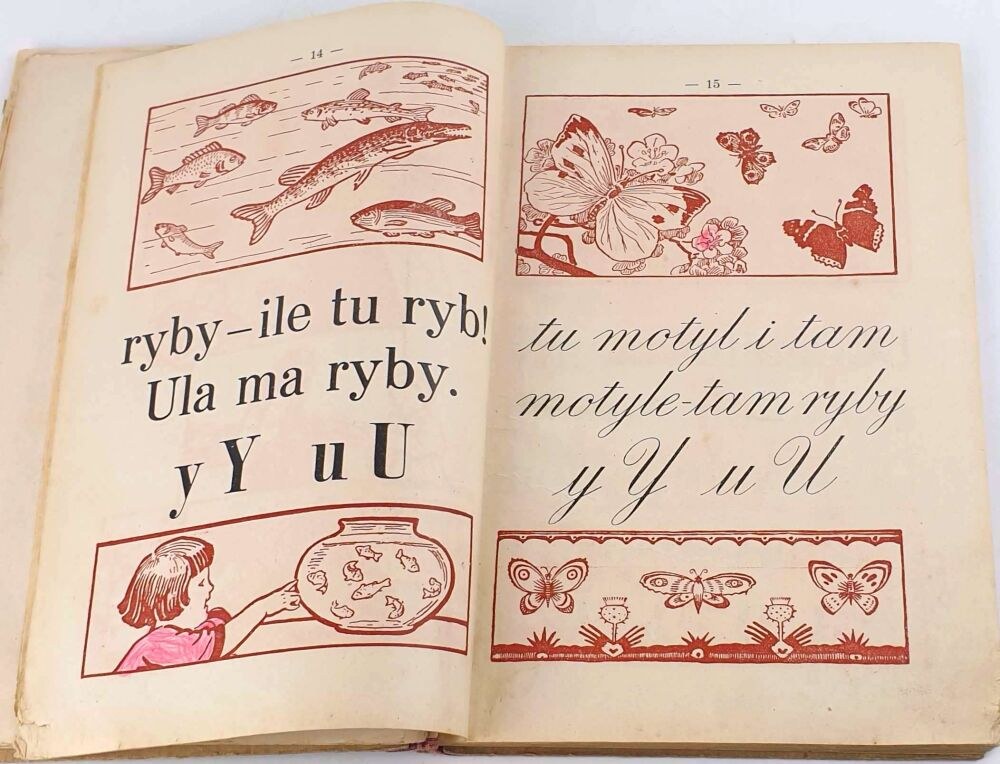 — 14 —
ryby – ile tu ryb!
Ula ma ryby.
y Y u U
— 15 —
tu motyl i tam
motyle - tam ryby
y Y u U